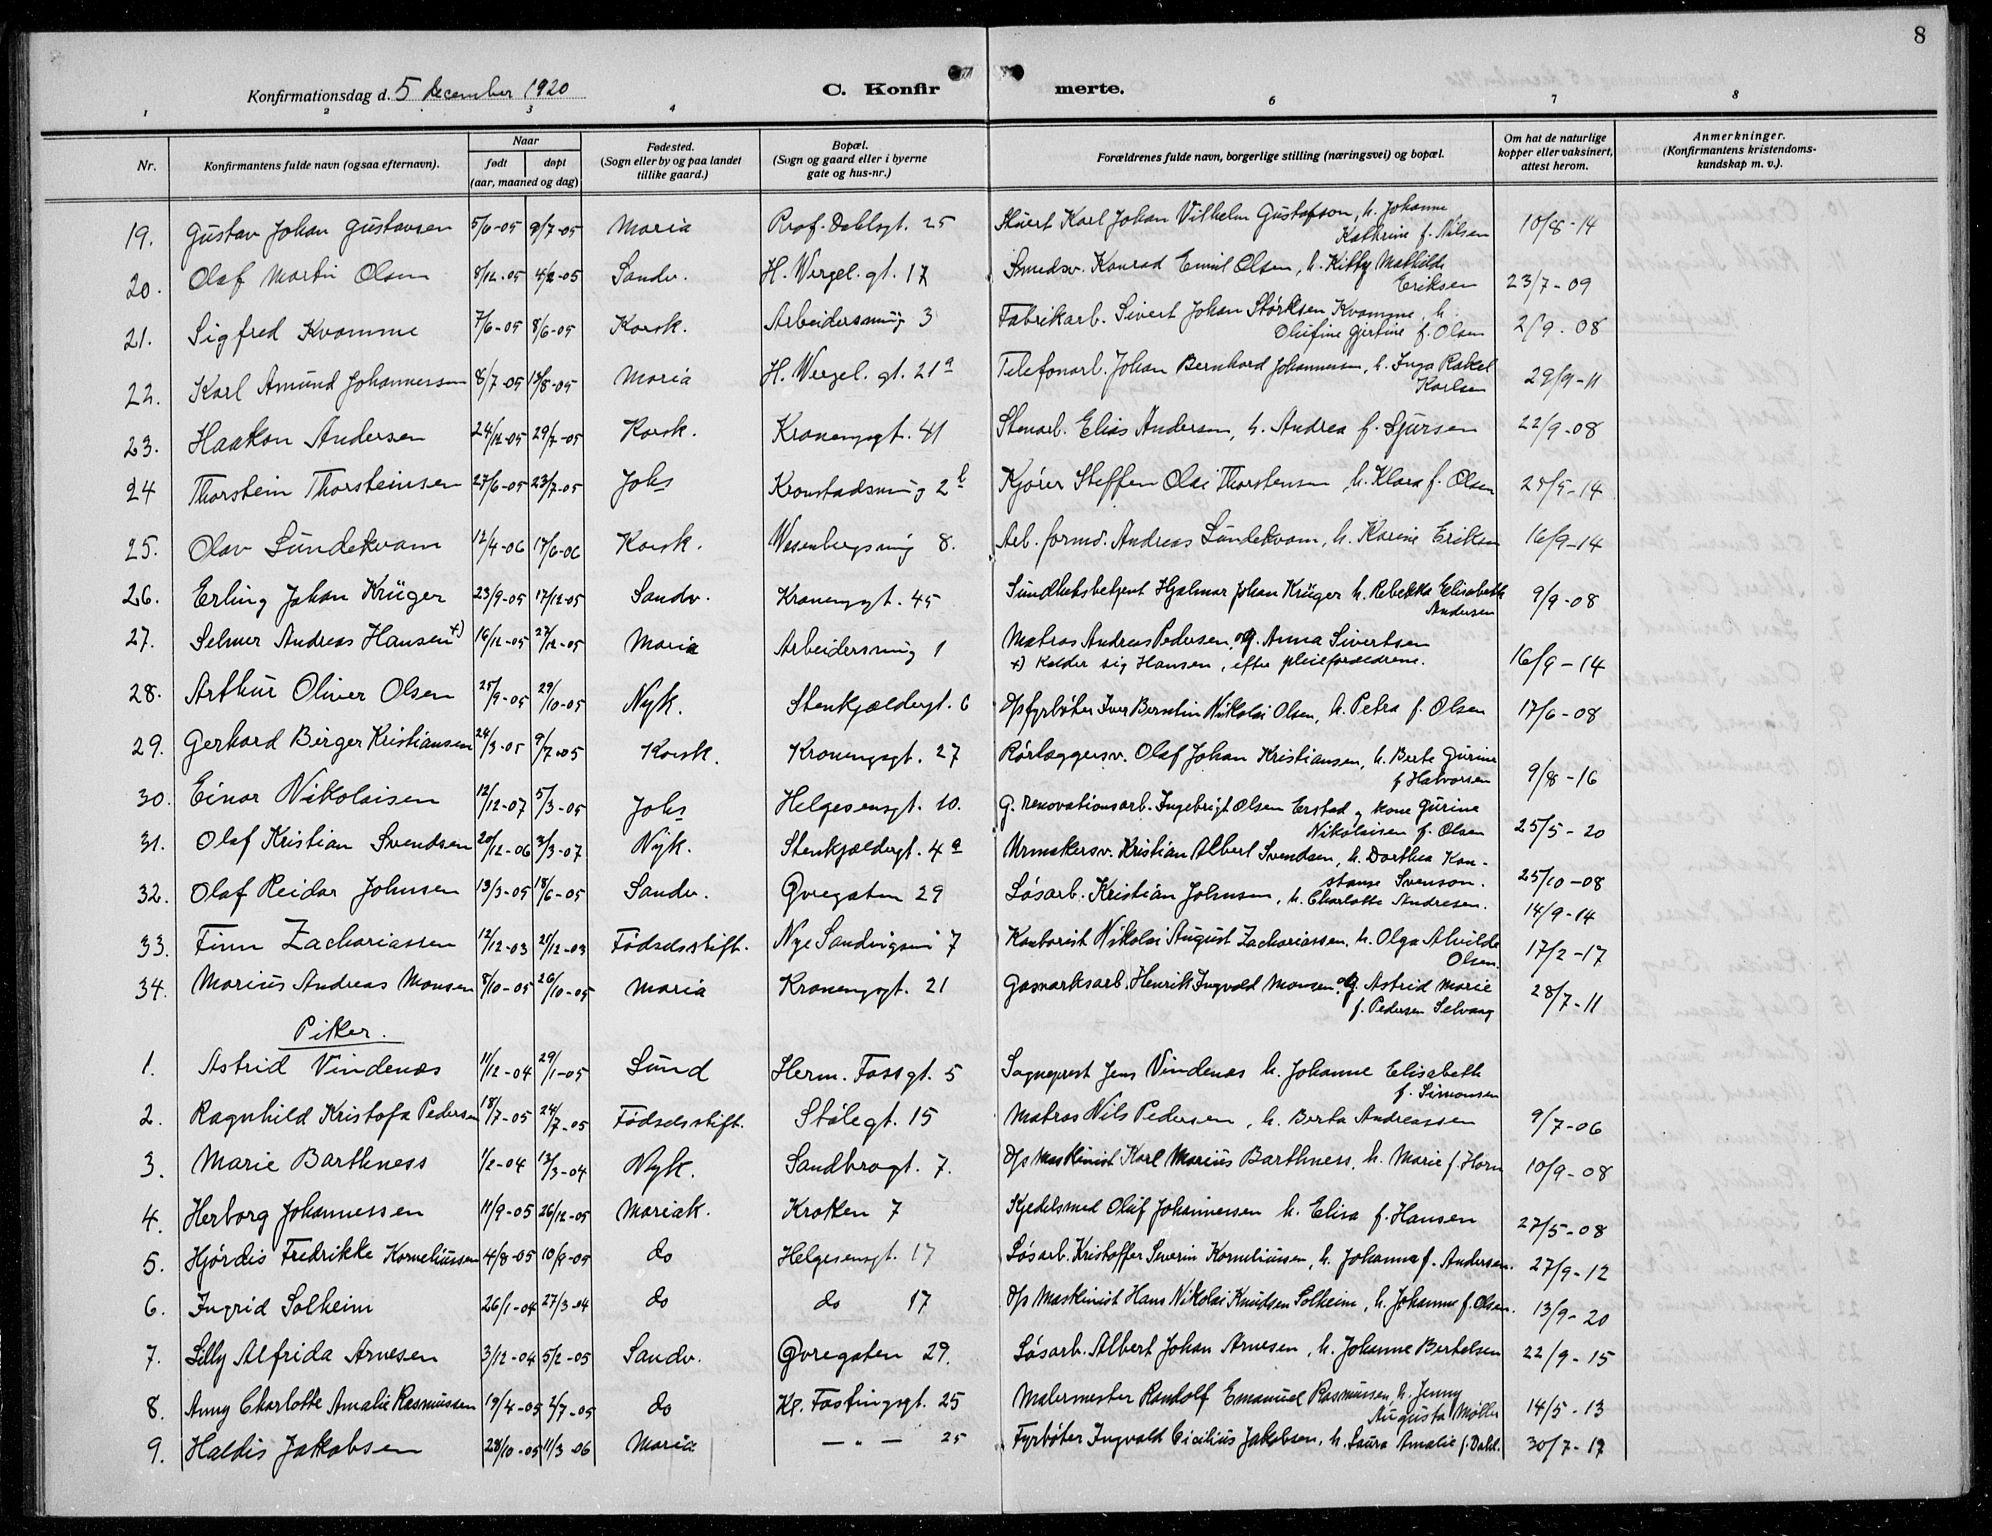 8
Konfirmationsdag d. 5 december 1920
C. Konfirmerte.
1 2 3 4 6 7 8
Nr. | Konfirmantens fulde navn (ogsaa efternavn). | Naar født døpt (aar, maaned og dag) | Fødested. (Sogn eller by og paa landet tillike gaard.) | Bopæl. (Sogn og gaard eller i byerne gate og hus-nr.) | Forældrenes fulde navn, borgerlige stilling (næringsvei) og bopæl. | Om hat de naturlige kopper eller vaksinert, attest herom. | Anmerkninger. (Konfirmantens kristendomskundskap m. v.).
19. Gustav Johan Gustavsen 5/6-05 9/7-05 Maria Prof. Dahlsgt. 25 Karl Johan Vilhelm Gustafson, h. Johanne Kathrine f. Nilsen 10/8-14
20. Olaf Martin Olsen 8/12-05 4/2-05 Sandv. H. Vergel. gt. 17 Smedsv. Konrad Emil Olsen, h. Kitty Mathilde Eriksen 23/7-09
21. Sigfred Kvamme 7/6-05 8/6-05 Korsk. Arbeidersmug 3 Fabrikarb. Sivert Johan Størksen Kvamme, h. Olufine Gjertine f. Olsen 2/9-08
22. Karl Amund Johannessen 8/7-05 13/8-05 Maria H. Vergel. gt. 21a Telefonarb. Johan Bernhard Johannessen, h. Inga Rakel Karlsen 29/9-11
23. Haakon Andersen 24/12-05 29/7-05 Korsk. Kronengsgt. 41 Stenarb. Elias Andersen, h. Andrea f. Sjursen 22/9-08
24 Thorstein Thorsteinsen 27/6-05 23/7-05 Johs Kronstadsmug 2b Kjører Steffen Olai Thorstensen, h. Klara f. Olsen 29/9-14
25. Olav Sundekvam 12/4-06 17/6-06 Korsk. Wesenbergsmug 8. Arb. formd. Andreas Sundekvam, h. Karine Eriksen 16/9-14
26. Erling Johan Krüger 23/9-05 17/12-05 Sandv. Kronengsgt. 45 Sundhetsbetjent Hjalmar Johan Krüger h. Rebekka Elisabeth Andersen 9/9-08
27. Selmer Andreas Hansen +) 16/12-05 27/12-05 Maria Arbeidersmug 1 Matros Andreas Pedersen, og Anna Sivertsen 16/9-14
+) Kalder sig Hansen, efter pleieforældrene.
28. Arthur Oliver Olsen 25/9-05 29/10-05 Nyk. Stenkjældergt. 6 D/s fyrbøter Iver Berntin Nikolai Olsen, h. Petra f. Olsen 17/6-08
29. Gerhard Birger Kristiansen 24/3-05 9/7-05 Korsk. Kronengsgt. 27 Rørlæggersv. Olaf Johan Kristiansen, h. Berte Gurine f Halvorsen 9/8-16
30. Einar Nikolaisen 12/12-07 5/3-05 Johs Helgesensgt. 10. G. renovationsarb. Ingebrigt Olsen Erstad og kone Gurine Nikolaisen f. Olsen 25/5-20
31. Olaf Kristian Svendsen 20/12-06 3/3-07 Nyk. Stenkjældergt. 4a Urmakersv. Kristian Albert Svendsen, h. Dorthea Konstanse Svenson. 25/10-08
32. Olaf Reidar Johnsen 13/3-05 18/6-05 Sandv. Øvregaten 29 Løsarb. Kristian Johnsen, h. Charlotte Andresen. 14/9-14
33. Finn Zachariassen 12/12-03 21/12-03 Fødselsstift. Nye Sandvigsvei 7 Kontorist Nikolai August Zachariassen, h. Olga Alvilde Olsen. 17/2-17
34. Marius Andreas Monsen 8/10-05 26/10-05 Maria Kronengsgt. 21 Gasverksarb. Henrik Ingvald Monsen, og Astrid Marie f. Pedersen Selvaag 28/7-11
Piker.
1. Astrid Vindenæs 11/12-04 29/1-05 Sund Herm. Fossgt. 5 Sogneprest Jens Vindenæs h. Johanne Elisabeth f. Simonsen
2. Ragnhild Kristofa Pedersen 18/7-05 24/7-05 Fødselsstift. Stølegt. 15 Matros Nils Pedersen, h. Berta Andreassen 9/7-06
3. Marie Barthness 1/2-04 13/3-04 Nyk. Sandbrogt. 7. D/s Maskinist Karl Marius Barthness, h. Marie f. Horn 10/9-08
4. Herborg Johannessen 11/9-05 26/12-05 Mariak. Krokken 7 Kjedelsmed Oluf Johannessen h. Elisa f. Hansen 27/5-08
5. Hjørdis Fredrikke Korneliussen 4/8-05 10/8-05 do Helgesensgt. 17 Løsarb. Kristoffer Severin Korneliussen, h. Johanne f. Andersen. 27/9-12
6. Ingrid Solheim 26/1-04 27/3-04 do do 17 D/s Maskinist Hans Nikolai Knudsen Solheim, h. Johanne f. Olsen. 13/9-20
7. Lilly Alfrida Arnesen 3/12-04 5/2-05 Sandv. Øvregaten 29. Løsarb. Albert Johan Arnesen, h. Johanne Bertelsen 22/9-15
8. Anny Charlotte Amalie Rasmussen 19/4-05 2/7-05 do Kl. Fastingsgt. 25 Malermester Randolf Emanuel Rasmussen, h. Jenny Augusta Møller 14/5-13
9. Haldis Jakobsen 28/10-05 11/3-06 Maria — " — 25 Fyrbøter Ingvald Cicilius Jakobsen, h. Laura Amalie f. Dahl. 30/7-17